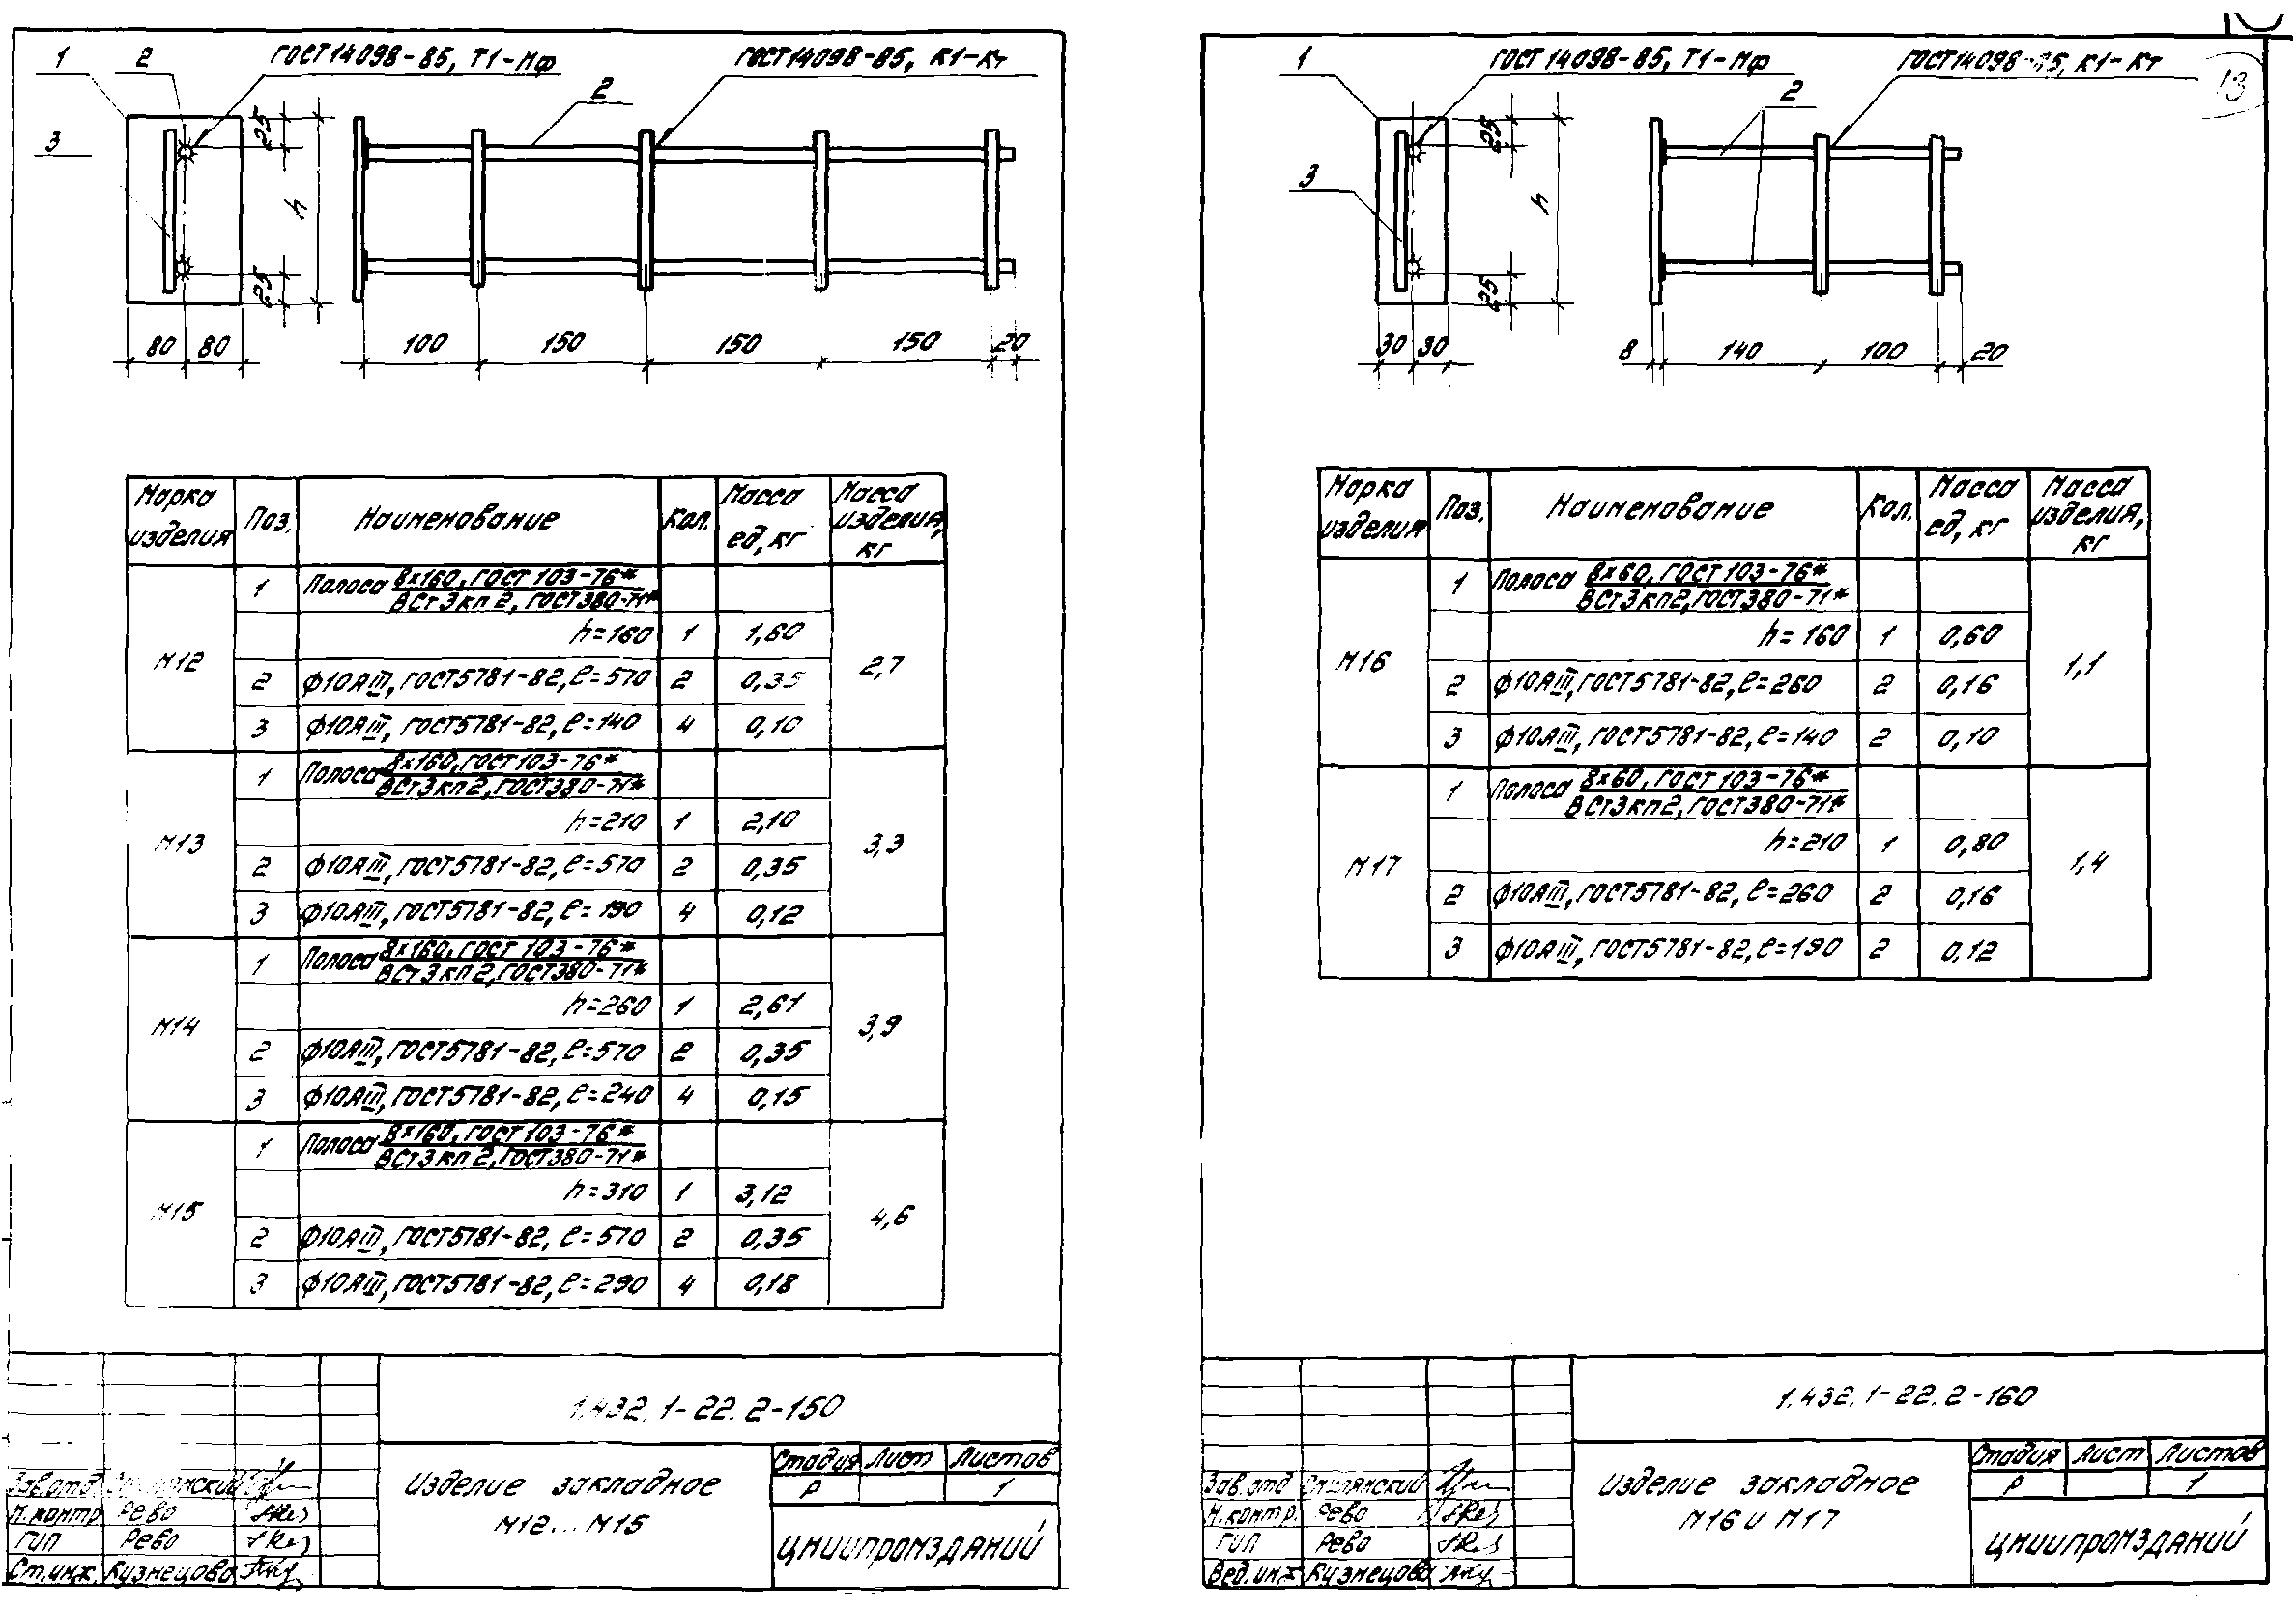 1 2 ГОСТ 14098-85, Т1-Мф ГОСТ 14098-85, К1-Кт
2
3
25
h
25
80 80 100 150 150 150 20
Марка изделия Поз. Наименование Кол. Масса ед, кг Масса изделия, кг
М12 2,7
1 Полоса 8×160, ГОСТ 103-76* / ВСт3кп2, ГОСТ 380-71*
h=160 1 1,60
2 ф10АIII, ГОСТ 5781-82, ℓ=570 2 0,35
3 ф10АIII, ГОСТ 5781-82, ℓ=140 4 0,10
М13 3,3
1 Полоса 8×160, ГОСТ 103-76* / ВСт3кп2, ГОСТ 380-71*
h=210 1 2,10
2 ф10АIII, ГОСТ 5781-82, ℓ=570 2 0,35
3 ф10АIII, ГОСТ 5781-82, ℓ=190 4 0,12
М14 3,9
1 Полоса 8×160, ГОСТ 103-76* / ВСт3кп2, ГОСТ 380-71*
h=260 1 2,61
2 ф10АIII, ГОСТ 5781-82, ℓ=570 2 0,35
3 ф10АIII, ГОСТ 5781-82, ℓ=240 4 0,15
М15 4,6
1 Полоса 8×160, ГОСТ 103-76* / ВСт3кп2, ГОСТ 380-71*
h=310 1 3,12
2 ф10АIII, ГОСТ 5781-82, ℓ=570 2 0,35
3 ф10АIII, ГОСТ 5781-82, ℓ=290 4 0,18
1.432.1-22.2-150
Зав.отд
Н.контр Рево
ГИП Рево
Ст.инж. Кузнецова
Изделие закладное
М12...М15
Стадия Лист Листов
Р 1
ЦНИИПРОМЗДАНИЙ
13
1 ГОСТ 14098-85, Т1-Мф ГОСТ 14098-85, К1-Кт
2
3
25
h
25
30 30 8 140 100 20
Марка изделия Поз. Наименование Кол. Масса ед, кг Масса изделия, кг
М16 1,1
1 Полоса 8×60, ГОСТ 103-76* / ВСт3кп2, ГОСТ 380-71*
h=160 1 0,60
2 ф10АIII, ГОСТ 5781-82, ℓ=260 2 0,16
3 ф10АIII, ГОСТ 5781-82, ℓ=140 2 0,10
М17 1,4
1 Полоса 8×60, ГОСТ 103-76* / ВСт3кп2, ГОСТ 380-71*
h=210 1 0,80
2 ф10АIII, ГОСТ 5781-82, ℓ=260 2 0,16
3 ф10АIII, ГОСТ 5781-82, ℓ=190 2 0,12
1.432.1-22.2-160
Зав.отд
Н.контр. Рево
ГИП Рево
Вед.инж Кузнецова
Изделие закладное
М16 и М17
Стадия Лист Листов
Р 1
ЦНИИПРОМЗДАНИЙ